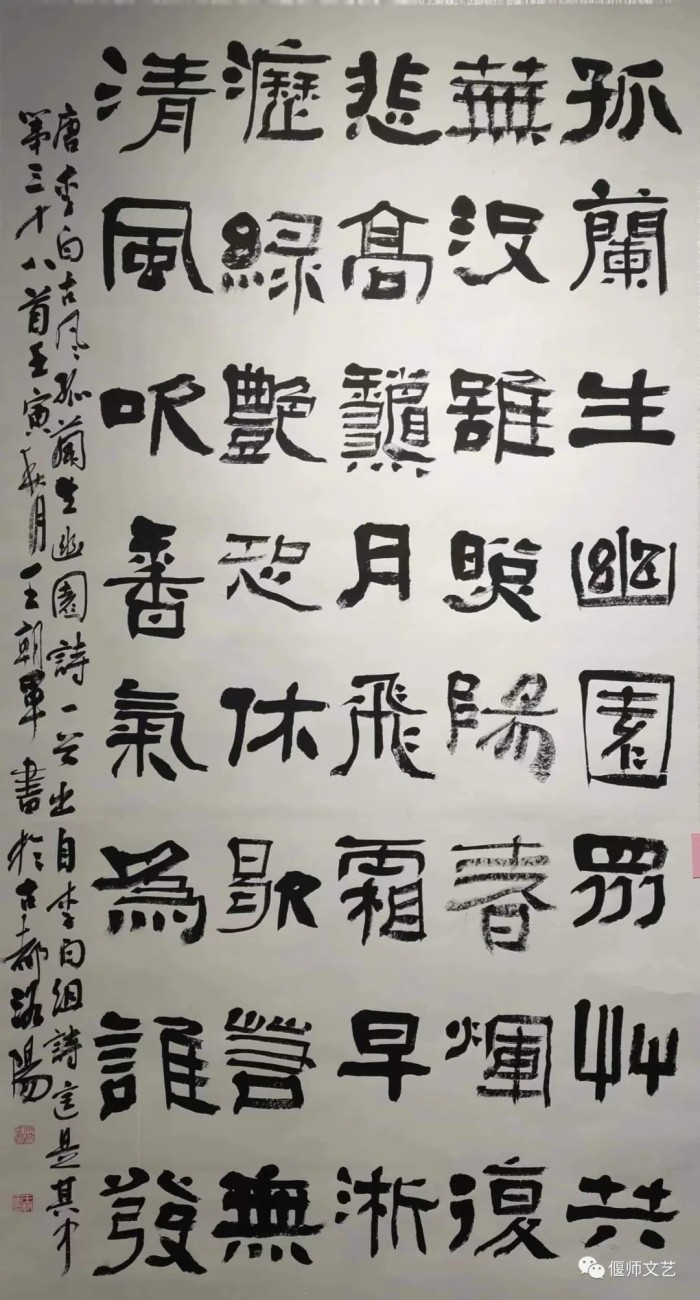 孤蘭生幽園眾艸共
蕪没雖照陽春煇復
悲高龝月飛霜早淅
瀝緑艷恐休歇若無
清風吹香氣為誰發
唐李白古風孤蘭生幽園詩一首出自李白組詩這是其中
第三十八首壬寅秋月王朝軍書於古都洛陽
偃师文艺